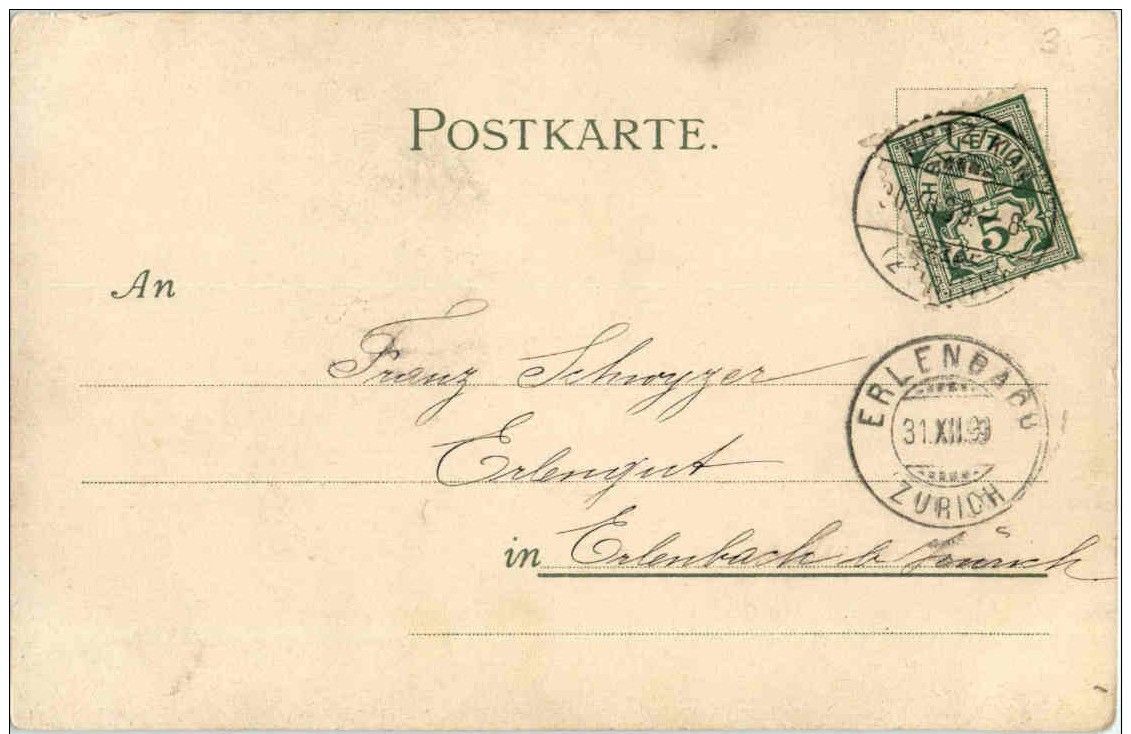 3
POSTKARTE.
HELVETIA
5
An
Franz Schwyzer
ERLENBACH
31.XII.99
ZÜRICH
Erlengut
in Erlenbach b Zürich